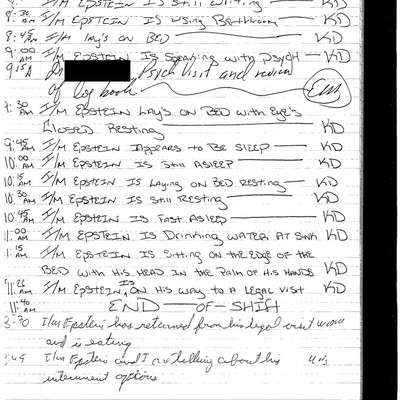 I/M EPSTEIN IS Still Writing — KD
8:30 AM I/M EPSTEIN IS Using Bathroom — KD
8:45 AM I/M lay's on BED — KD
9:00 AM I/M EPSTEIN IS Speaking with PSYCH — KD
9:15A Dr Psych visit and review
of log book
9:30 AM I/M EPSTEIN LAY'S ON BED with EYE'S
CLOSED Resting — KD
9:45 AM I/M EPSTEIN Appears to BE SLEEP — KD
10:00 AM I/M EPSTEIN IS Still ASLEEP — KD
10:15 AM I/M EPSTEIN IS Laying ON BED RESTING — KD
10:30 AM I/M EPSTEIN IS Still RESTING — KD
10:45 AM I/M EPSTEIN IS FAST ASLEEP — KD
11:00 AM I/M EPSTEIN IS Drinking WATER At SINK KD
:15 AM I/M EPSTEIN IS Sitting ON the EDGE OF the
BED with His HEAD IN the PALM OF His HANDS KD
11:26 AM I/M EPSTEIN, IS ON His WAY to A LEGAL VISIT KD
11:40 AM END — OF — SHIFT
3:30 I/m Epstein has returned from his legal visit
and is eating
:45 I/m Epstein and I are talking about his
internment options